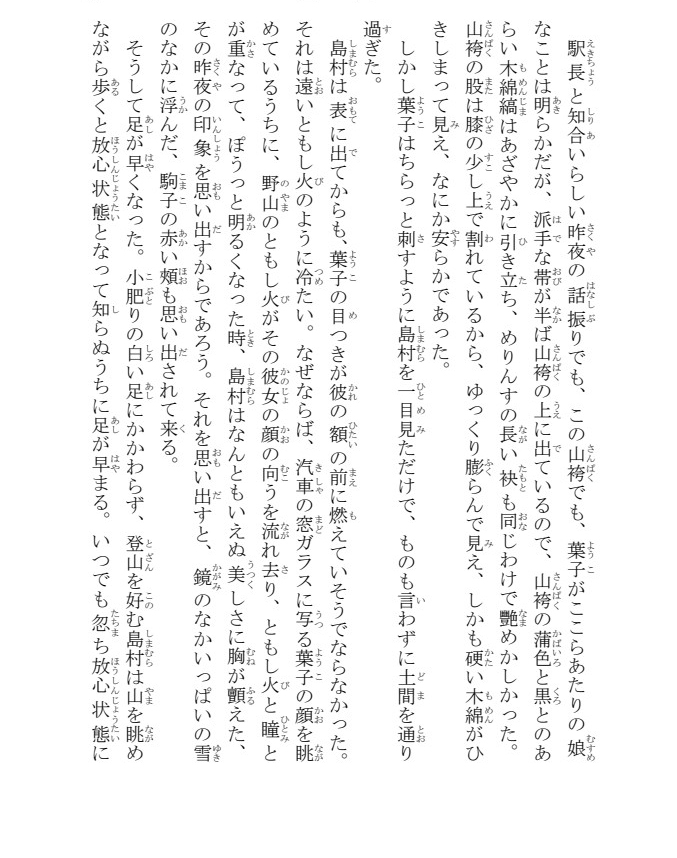 駅長と知合いらしい昨夜の話振りでも、この山袴でも、葉子がここらあたりの娘
なことは明らかだが、派手な帯が半ば山袴の上に出ているので、山袴の蒲色と黒とのあ
らい木綿縞はあざやかに引き立ち、めりんすの長い袂も同じわけで艶めかしかった。
山袴の股は膝の少し上で割れているから、ゆっくり膨らんで見え、しかも硬い木綿がひ
きしまって見え、なにか安らかであった。
しかし葉子はちらっと刺すように島村を一目見ただけで、ものも言わずに土間を通り
過ぎた。
島村は表に出てからも、葉子の目つきが彼の額の前に燃えていそうでならなかった。
それは遠いともし火のように冷たい。なぜならば、汽車の窓ガラスに写る葉子の顔を眺
めているうちに、野山のともし火がその彼女の顔の向うを流れ去り、ともし火と瞳と
が重なって、ぽうっと明るくなった時、島村はなんともいえぬ美しさに胸が顫えた、
その昨夜の印象を思い出すからであろう。それを思い出すと、鏡のなかいっぱいの雪
のなかに浮んだ、駒子の赤い頰も思い出されて来る。
そうして足が早くなった。小肥りの白い足にかかわらず、登山を好む島村は山を眺め
ながら歩くと放心状態となって知らぬうちに足が早まる。いつでも忽ち放心状態に